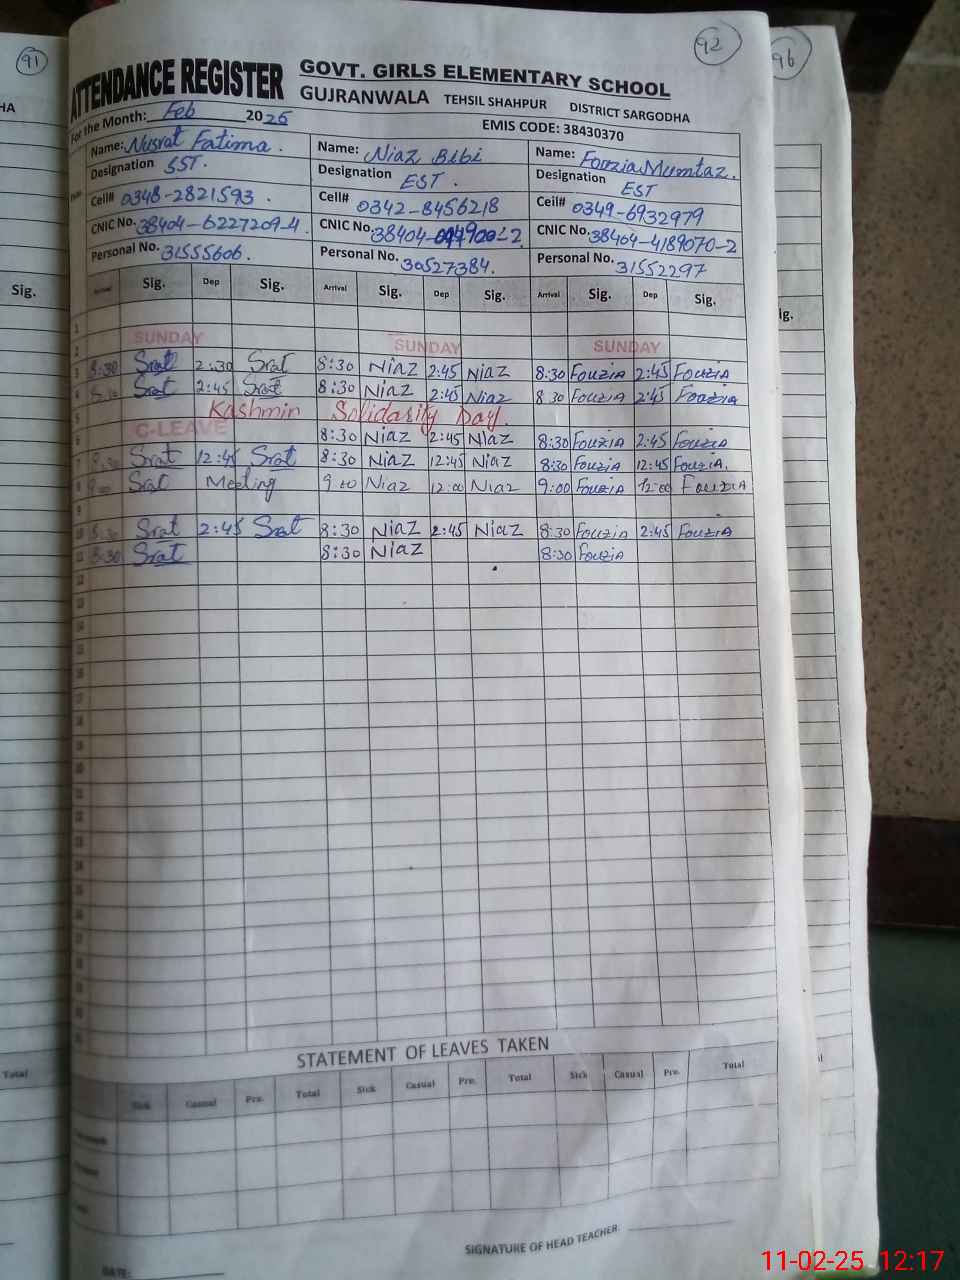 91
92
96
ATTENDANCE REGISTER GOVT. GIRLS ELEMENTARY SCHOOL
GUJRANWALA TEHSIL SHAHPUR DISTRICT SARGODHA
For the Month: Feb 2025 EMIS CODE: 38430370
Name: Nusrat Fatima. Name: Niaz Bibi Name: Fouzia Mumtaz.
Designation SST. Designation EST. Designation EST
Cell# 0348-2821593. Cell# 0342-8456218 Cell# 0349-6932979
CNIC No. 38404-6227209-4. CNIC No. 38404- CNIC No. 38404-4189070-2
Personal No. 31555606. Personal No. 30527384. Personal No. 31552297
Arrival Sig. Dep Sig. Arrival Sig. Dep Sig. Arrival Sig. Dep Sig.
1
2 SUNDAY SUNDAY SUNDAY
3 8:30 Srat 2:30 Srat 8:30 Niaz 2:45 Niaz 8:30 Fouzia 2:45 Fouzia
4 Srat 2:45 Srat 8:30 Niaz 2:45 Niaz 8:30 Fouzia 2:45 Fouzia
5 Kashmir Solidarity Day.
6 C-LEAVE 8:30 Niaz 2:45 Niaz 8:30 Fouzia 2:45 Fouzia
7 8:30 Srat 12:45 Srat 8:30 Niaz 12:45 Niaz 8:30 Fouzia 12:45 Fouzia.
8 9:00 Srat Meeting 9:00 Niaz 12:00 Niaz 9:00 Fouzia 12:00 Fouzia
9
10 8:30 Srat 2:45 Srat 8:30 Niaz 2:45 Niaz 8:30 Fouzia 2:45 Fouzia
11 8:30 Srat 8:30 Niaz 8:30 Fouzia
12
13
14
15
16
17
18
STATEMENT OF LEAVES TAKEN
Sick Casual Pre. Total Sick Casual Pre. Total Sick Casual Pre. Total
SIGNATURE OF HEAD TEACHER
DATE:
HA
Sig.
Total
ig.
11-02-25 12:17